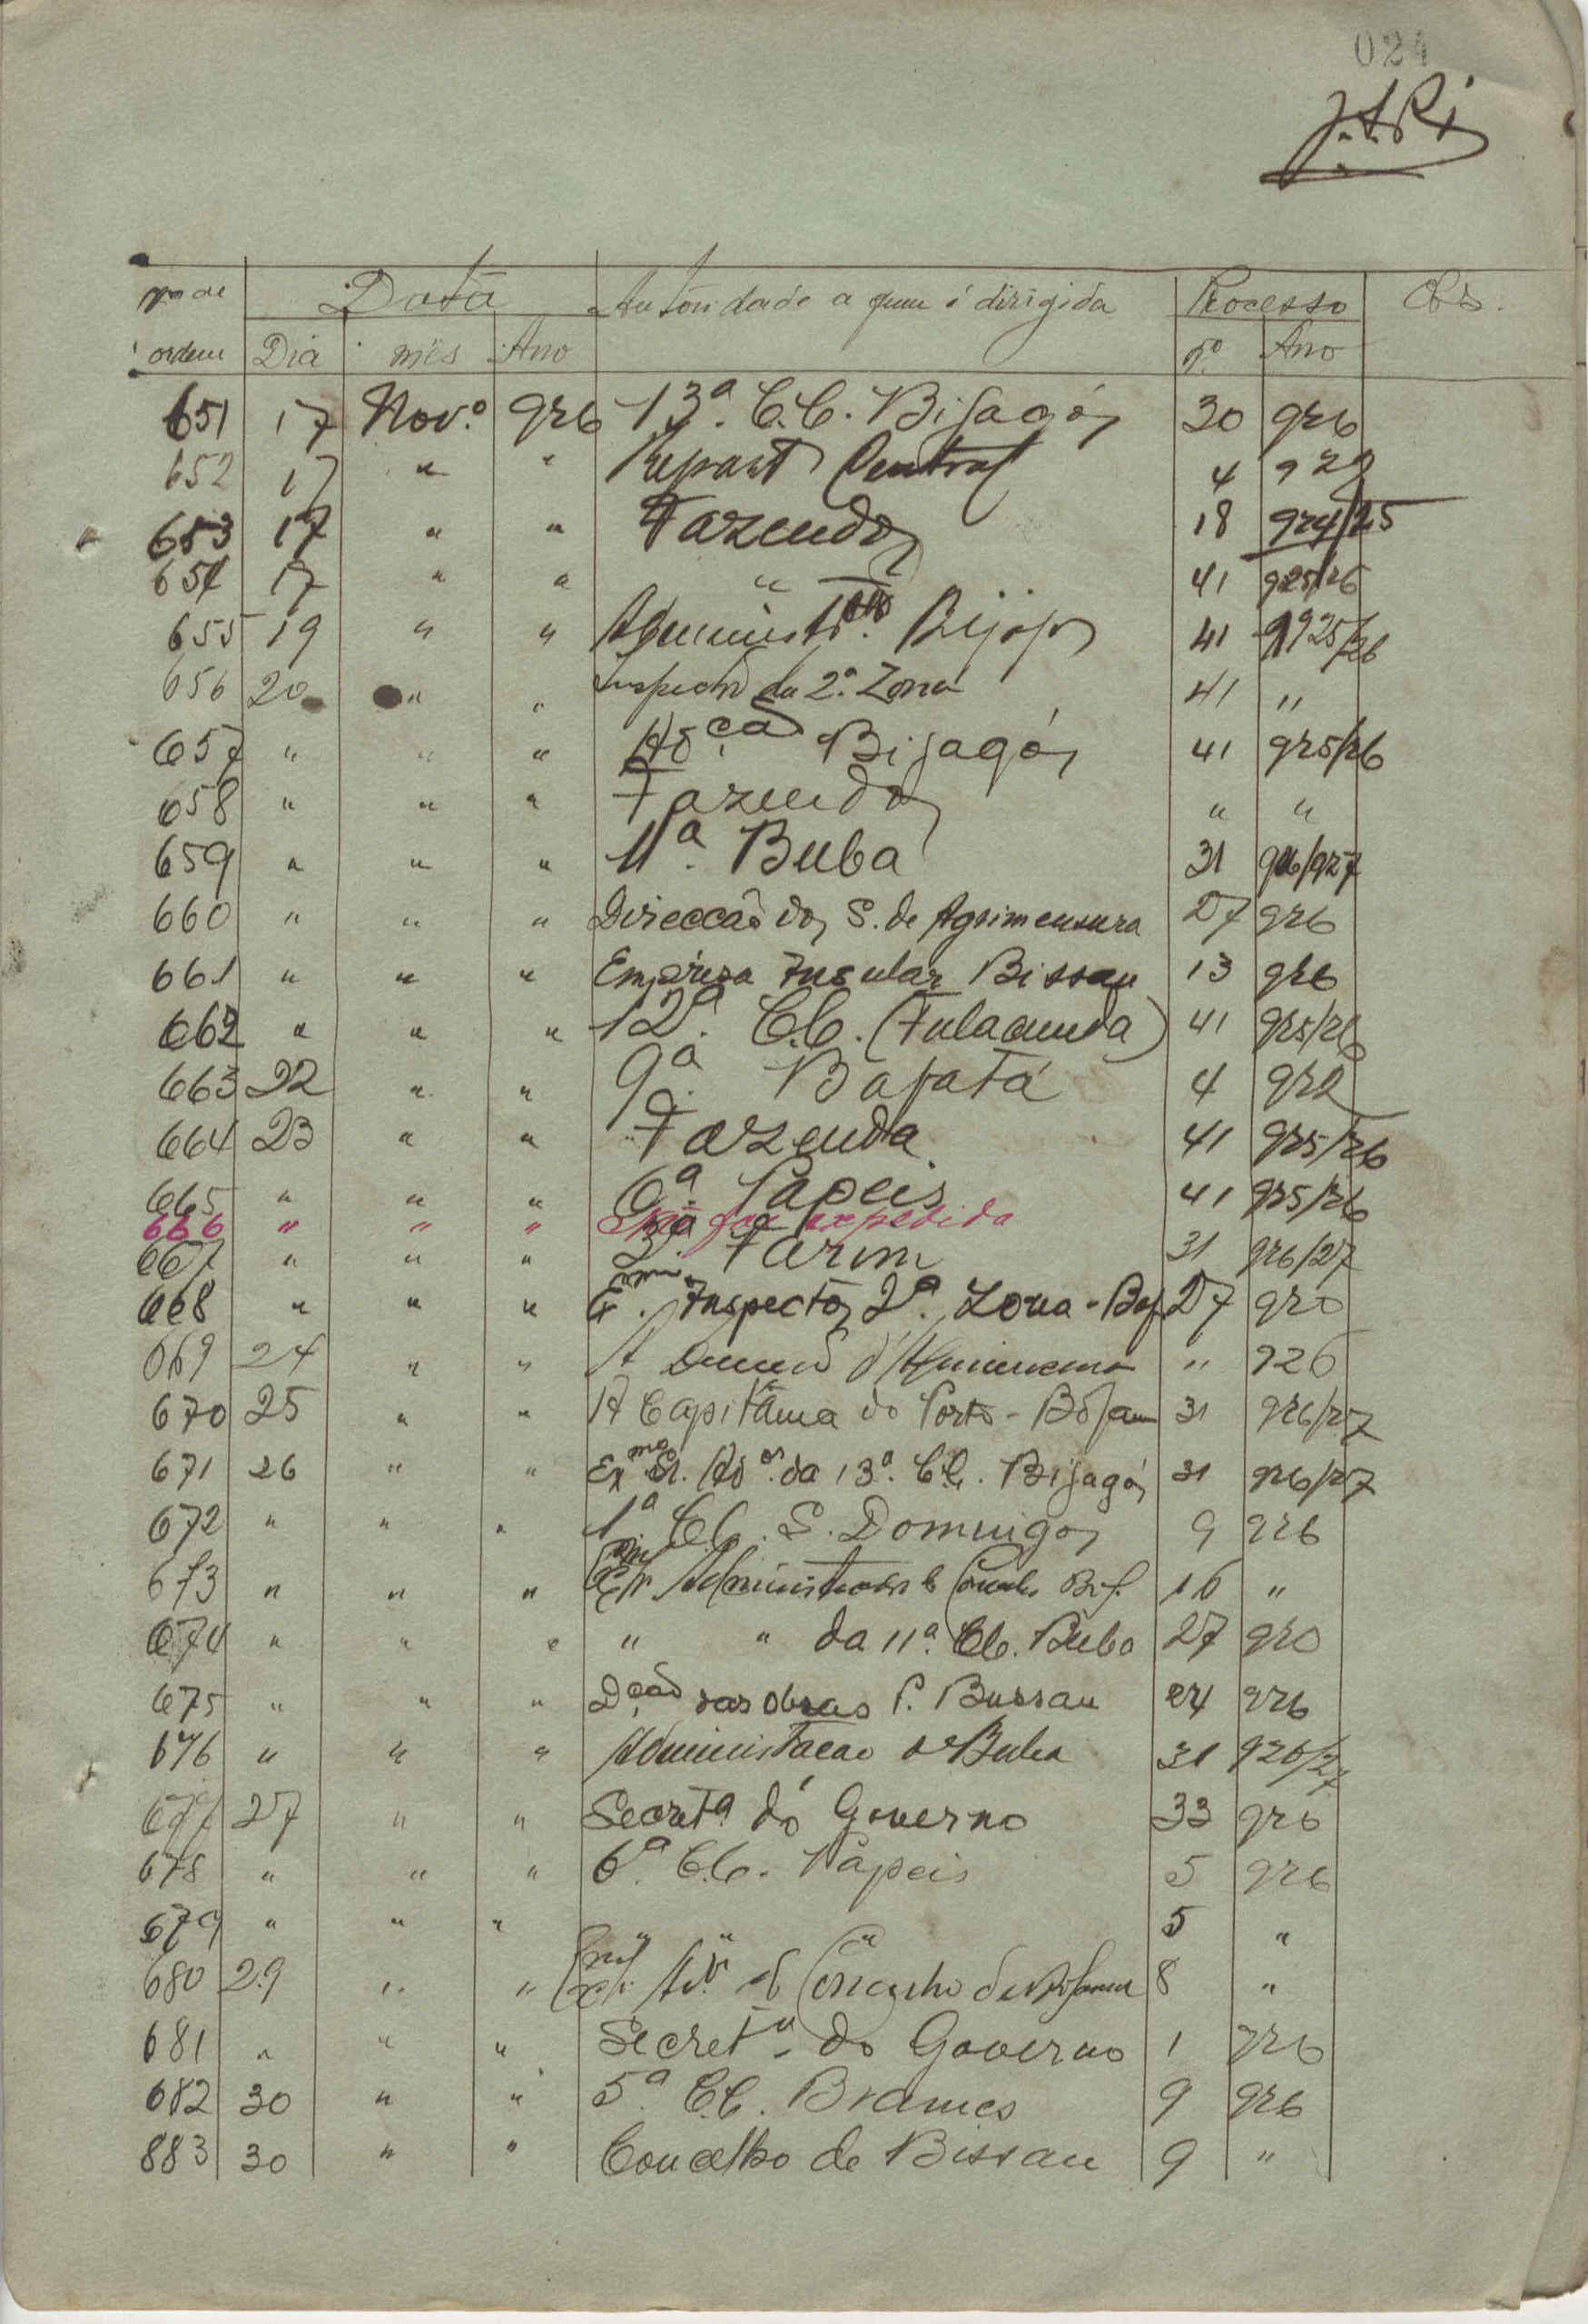 024
Nº de Data Autoridade a quem é dirigida Processo Obs.
ordem Dia mês Ano nº Ano
651 17 Nov.º 926 13ª. C.C. Bijagós 30 926
652 17 " " Repart Central 4 922
653 17 " " Fazenda 18 924/25
654 17 " " " 41 925/26
655 19 " " 41 1925/26
656 20 " " Inspector da 2ª. Zona 41 "
657 " " " Ad.ção Bijagós 41 925/26
658 " " " Fazenda " "
659 " " " 11ª. Buba 31 926/927
660 " " " Direcção dos S. de Agrimensura 27 926
661 " " " Empreza Insular Bissau 13 926
662 " " " 12ª. C.C. (Fulacunda) 41 925/26
663 22 " " 9ª. Bafatá 4 922
664 23 " " Fazenda 41 925/26
665 " " " 6ª. Papeis 41 925/26
666 " " " Não foi expedida
667 " " " 3ª. Farim 31 926/27
668 " " " Inspector 2ª. Zona - Baf. 27 920
669 24 " " " 926
670 25 " " A Capitania do Porto - Bolama 31 926/27
671 26 " " Exmo Sr. Ad.or da 13ª. C.C. Bijagós 31 926/27
672 " " " 1ª C.C. S. Domingos 9 926
673 " " " Administrador 16 "
674 " " " " " da 11ª. C.C. Buba 27 920
675 " " " D.ção das Obras P. Bissau 24 926
676 " " " Administracao de Buba 31 926/27
677 27 " " Secretª. do Governo 33 926
678 " " " 6ª. C.C. Papeis 5 926
679 " " " " " " 5 "
680 29 " " Concelho de Bolama 8 "
681 " " " Secretª. do Governo 1 926
682 30 " " 5ª C.C. Brames 9 926
883 30 " " Concelho de Bissau 9 "